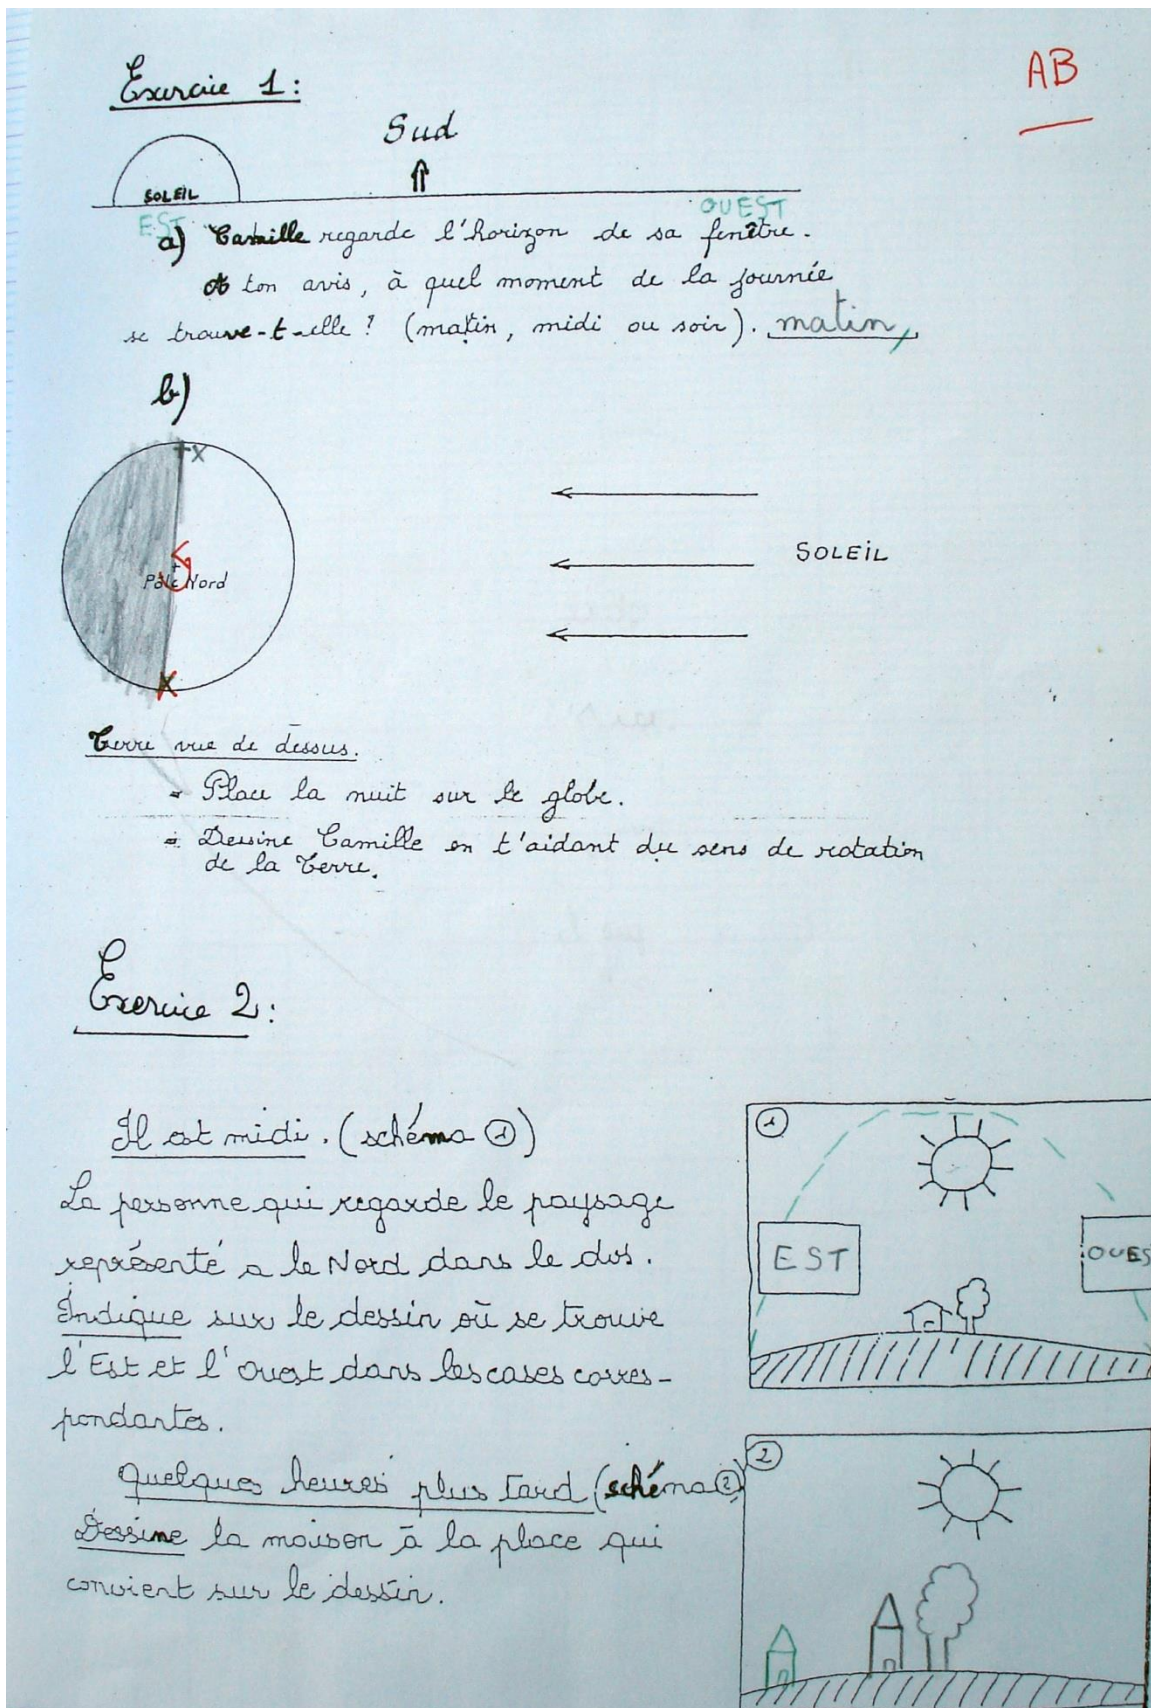 Exercice 1:
AB
Sud
SOLEIL
EST
OUEST
a) Camille regarde l'horizon de sa fenêtre.
A ton avis, à quel moment de la journée
se trouve-t-elle ? (matin, midi ou soir). matin
b)
X
Pôle Nord
SOLEIL
X
Terre vue de dessus.
- Place la nuit sur le globe.
- Dessine Camille en t'aidant du sens de rotation
de la Terre.
Exercice 2:
Il est midi. (schéma ①)
La personne qui regarde le paysage
représenté a le Nord dans le dos.
Indique sur le dessin où se trouve
l'Est et l'Ouest dans les cases corres-
pondantes.
①
EST
OUES
Quelques heures plus tard (schéma ②)
Dessine la maison à la place qui
convient sur le dessin.
②